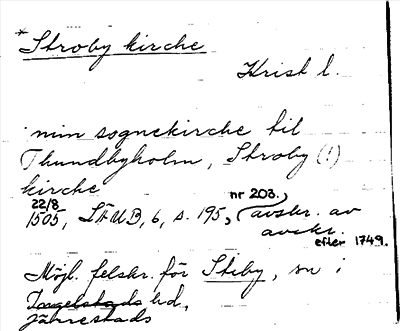 *Stroby kirche
Krist l.
min sognekirche til
Thundbyholm, Stroby (!)
kirche
22/8 nr 203.
1505, LÄUB, 6, s. 195, avskr. av
avskr.
efter 1749.
Möjl. felskr. för Stiby, sn i
Ingelstads hd,
Järrestads